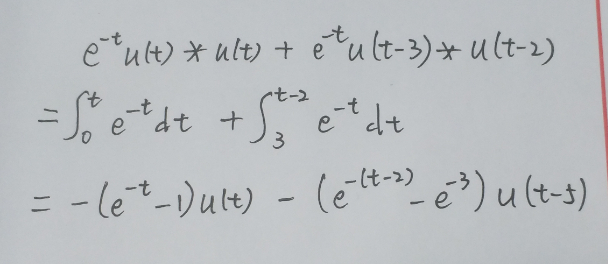 e^{-t}u(t) * u(t) + e^{-t}u(t-3) * u(t-2)
= ∫_0^t e^{-t}dt + ∫_3^{t-2} e^{-t} dt
= -(e^{-t}-1)u(t) - (e^{-(t-2)} - e^{-3}) u(t-5)